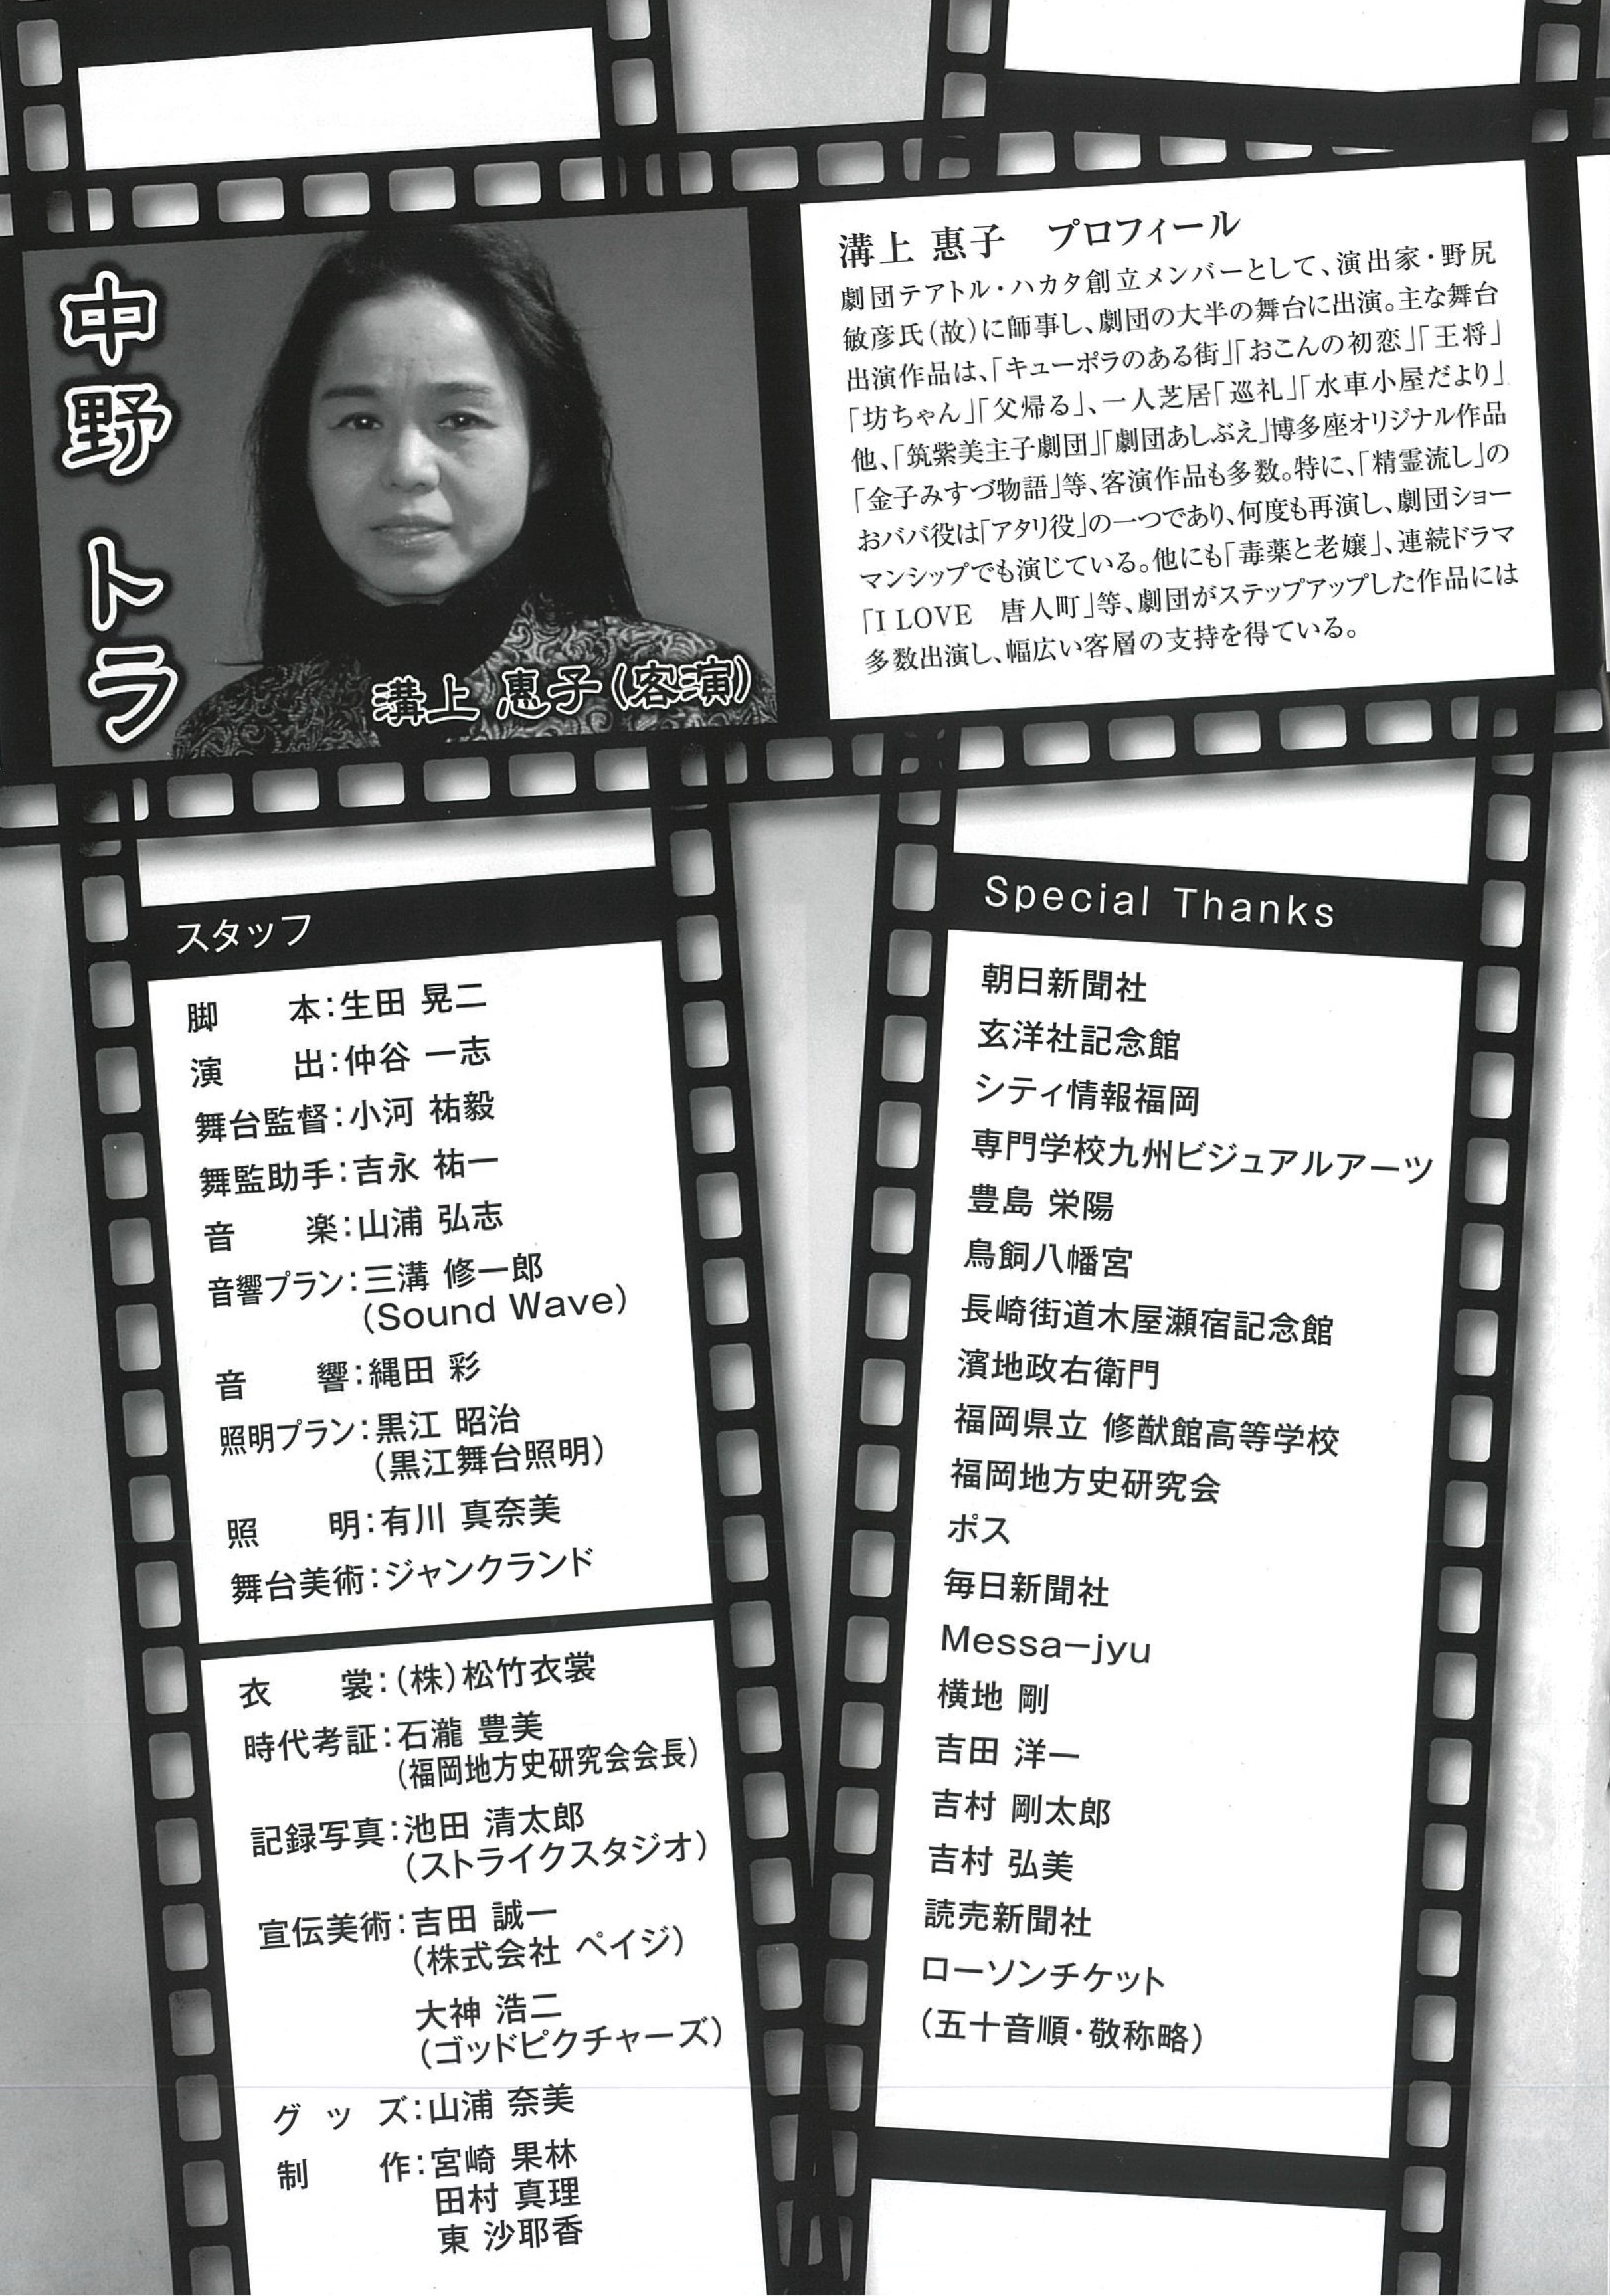 中野 トラ
溝上 惠子(客演)
溝上 惠子　プロフィール
劇団テアトル・ハカタ創立メンバーとして、演出家・野尻
敏彦氏(故)に師事し、劇団の大半の舞台に出演。主な舞台
出演作品は、「キューポラのある街」「おこんの初恋」「王将」
「坊ちゃん」「父帰る」、一人芝居「巡礼」「水車小屋だより」
他、「筑紫美主子劇団」「劇団あしぶえ」博多座オリジナル作品
「金子みすづ物語」等、客演作品も多数。特に、「精霊流し」の
おババ役は「アタリ役」の一つであり、何度も再演し、劇団ショー
マンシップでも演じている。他にも「毒薬と老嬢」、連続ドラマ
「I LOVE　唐人町」等、劇団がステップアップした作品には
多数出演し、幅広い客層の支持を得ている。
スタッフ
脚　　本:生田 晃二
演　　出:仲谷 一志
舞台監督:小河 祐毅
舞監助手:吉永 祐一
音　　楽:山浦 弘志
音響プラン:三溝 修一郎
(Sound Wave)
音　　響:縄田 彩
照明プラン:黒江 昭治
(黒江舞台照明)
照　　明:有川 真奈美
舞台美術:ジャンクランド
衣　　裳:(株)松竹衣裳
時代考証:石瀧 豊美
(福岡地方史研究会会長)
記録写真:池田 清太郎
(ストライクスタジオ)
宣伝美術:吉田 誠一
(株式会社 ペイジ)
大神 浩二
(ゴッドピクチャーズ)
グ ッ ズ:山浦 奈美
制　　作:宮崎 果林
田村 真理
東 沙耶香
Special Thanks
朝日新聞社
玄洋社記念館
シティ情報福岡
専門学校九州ビジュアルアーツ
豊島 栄陽
鳥飼八幡宮
長崎街道木屋瀬宿記念館
濱地政右衛門
福岡県立 修猷館高等学校
福岡地方史研究会
ポス
毎日新聞社
Messa−jyu
横地 剛
吉田 洋一
吉村 剛太郎
吉村 弘美
読売新聞社
ローソンチケット
(五十音順・敬称略)